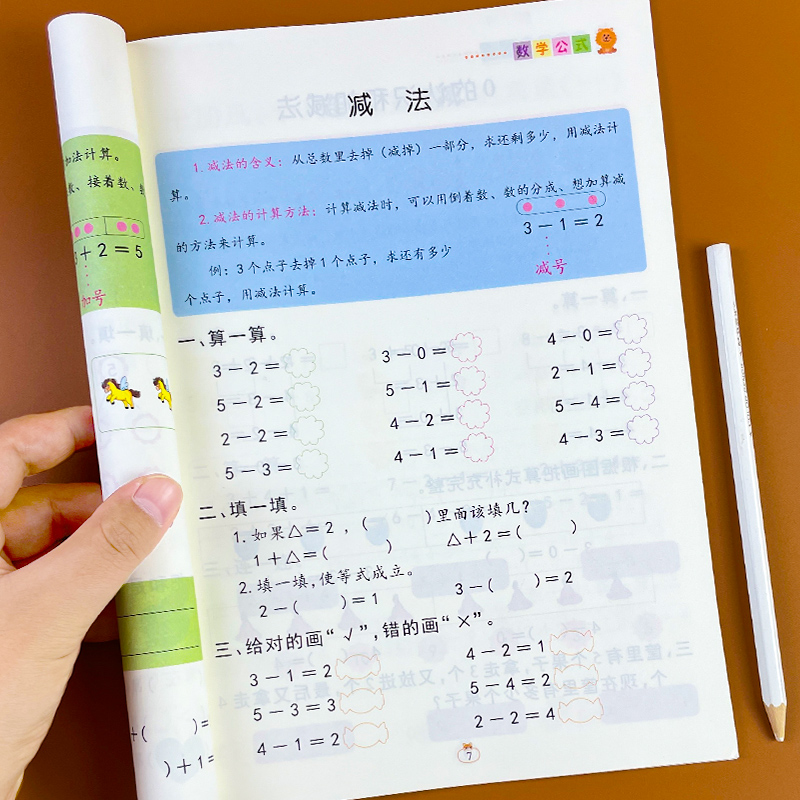 数学公式
减 法
1.减法的含义：从总数里去掉（减掉）一部分，求还剩多少，用减法计
算。
2.减法的计算方法：计算减法时，可以用倒着数、数的分成、想加算减
的方法来计算。
例：3个点子去掉1个点子，求还有多少
个点子，用减法计算。
3－1＝2
减号
一、算一算。
3－2＝ 3－0＝ 4－0＝
5－2＝ 5－1＝ 2－1＝
2－2＝ 4－2＝ 5－4＝
5－3＝ 4－1＝ 4－3＝
二、填一填。
1.如果△＝2，（ ）里面该填几？
1＋△＝（ ） △＋2＝（ ）
2.填一填，使等式成立。
2－（ ）＝1 3－（ ）＝2
三、给对的画“√”，错的画“×”。
3－1＝2 4－2＝1
5－3＝3 5－4＝2
4－1＝2 2－2＝4
7
加法计算。
、接着数、
＋2＝5
加号
填一填。
＋（ ）＝
）＋1＝